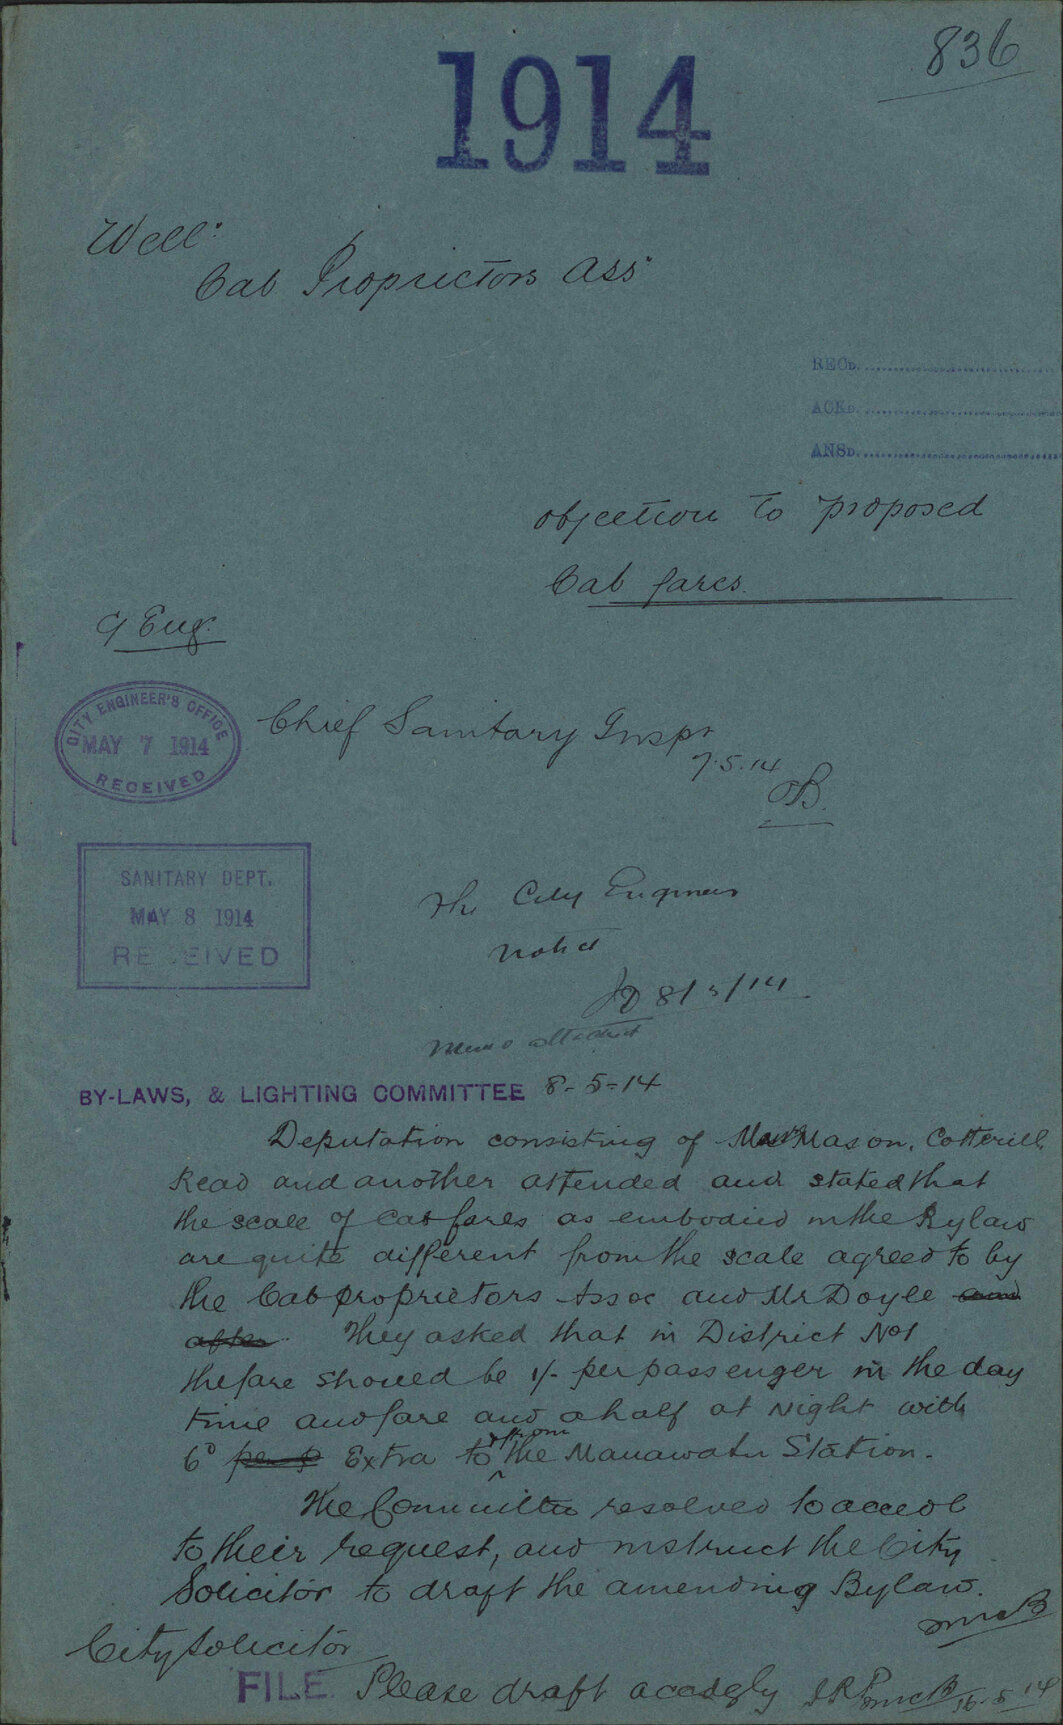 836
1914
Well:
Cab Proprietors Ass:
RECD.
ACKD.
ANSD.
objection to proposed
Cab fares.
C Eng.
CITY ENGINEER'S OFFICE
MAY 7 1914
RECEIVED
Chief Sanitary Inspr
7.5.14
SANITARY DEPT.
MAY 8 1914
RECEIVED
The City Engineer
Noted
JD 8/5/14
Memo attached
BY-LAWS, & LIGHTING COMMITTEE 8-5-14
Deputation consisting of Mason, Cotterill
Read and another attended and stated that
the scale of Cab fares as embodied in the Bylaw
are quite different from the scale agreed to by
the Cab proprietors Assoc and Mr Doyle and
after They asked that in District No1
the fare should be 1/- per passenger in the day
time and fare and a half at Night with
6D per p Extra to & from the Manawatu Station.
The Committee resolved to accede
to their request, and instruct the City
Solicitor to draft the amending Bylaw.
City Solicitor
FILE Please draft accdgly
16.5.14